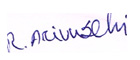 R. Arivuselvi